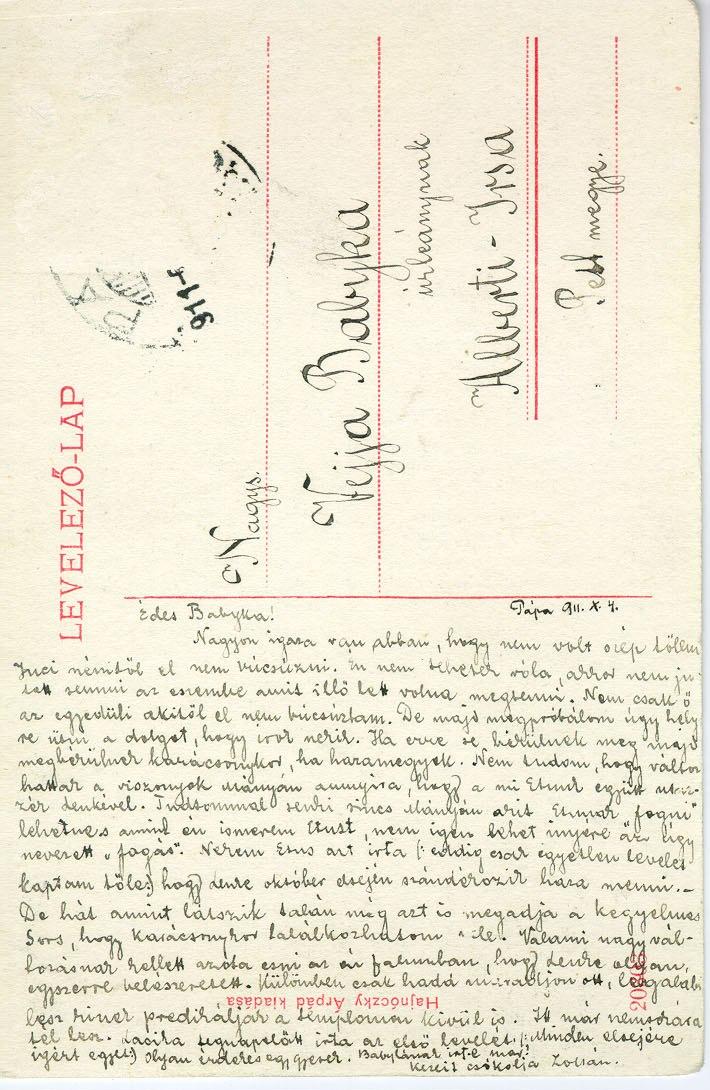 LEVELEZŐ-LAP
Nagys.
Vejja Babyka
úrleánynak
Alberti-Irsa
Pest megye.
911
Édes Babyka!
Pápa 911. X. 4.
Nagyon igaza van abban, hogy nem volt szép tőllem
Juci nénitől el nem búcsúzni. Én nem tehetek róla, akkor nem ju-
tott semmi az eszembe amit illő lett volna megtenni. Nem csak ő
az egyedüli akitől el nem búcsúztam. De majd megpróbálom úgy hely-
re ütni a dolgot, hogy irok nekik. Ha erre se békülnek meg majd
megbékülnek karácsonykor, ha hazamegyek. Nem tudom, hogy változ
hattak a viszonyok Mányán annyira, hogy a mi Etusunk együtt
denkével. Tudtommal senki sincs Mányán akit Etusnak "fogni"
lehetne s amint én ismerem Etust, nem igen lehet ínyére az úgy
nevezett "fogás". Nekem Etus azt írta (: eddig csak egyetlen levelet
kaptam tőle:) hogy denke október elsején szándékozik haza menni. -
De hát amint látszik talán még azt is megadja a kegyelmes
Sors, hogy karácsonykor találkozhatom vele. Valami nagy vál-
tozásnak kellett azóta esni az én falumban, hogy denke
egyszerre beleszeretett. Különben csak hadd maradjon ott, legalább
lesz kinek prédikálják a templomon kívül is. Itt már nemsokára
tél lesz. Lacika tegnapelőtt írta az első levelét (: Minden elsejére
igért egyet:) Olyan érdekes egy gyerek. Babykának írt-e már?
Kezeit csókolja Zoltán.
Hajnóczky Árpád kiadása